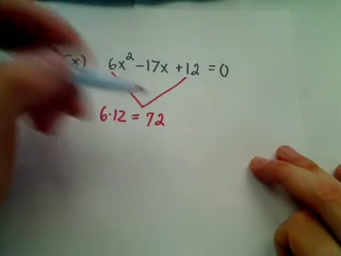 x) 6x² -17x +12 = 0
6·12 = 72